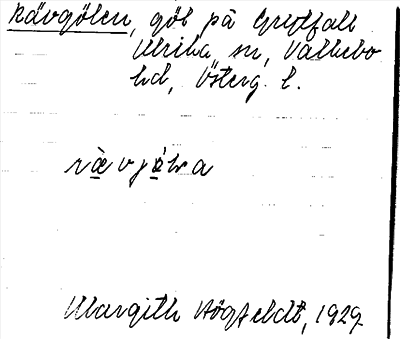 Rävgölen, göl på Grytfall
Ulrika sn, Valkebo
hd, Österg. l.
Margith Högfeldt, 1929